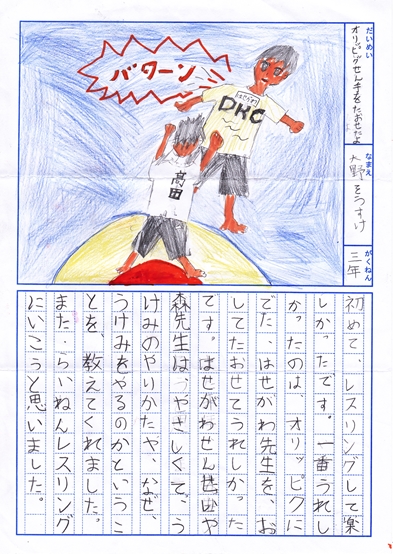 だいめい
オリッピグせん手をたおせたよ
なまえ
大野そうすけ
がくねん
三年
バターン
DKC
高田
初めて、レスリングして楽
しかったです。一番うれし
かったのは、オリッピクに
でた、はせがわ先生を、お
してたおせてうれしかった
です。はせがわせん
森先生は、やさしくて、う
けみのやりかたや、なぜ、
うけみをやるのかというこ
とを、教えてくれました。
また、らいねんレスリング
にいこうと思いました。